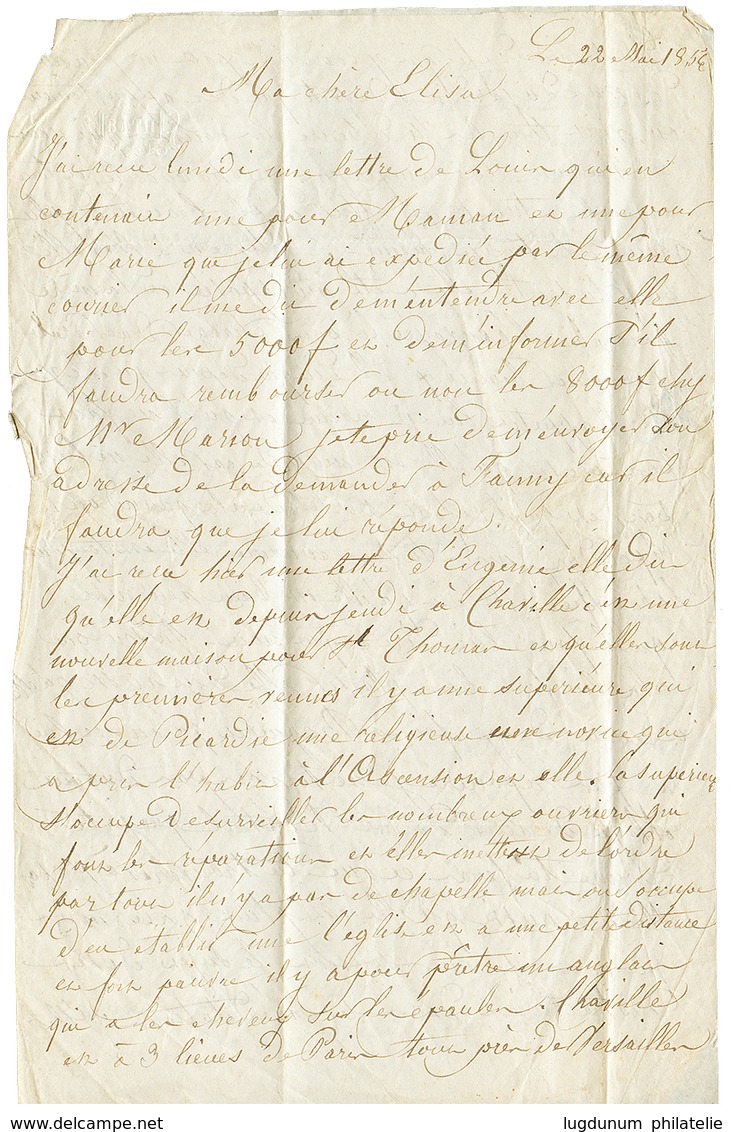 Le 22 Mai 1856
Ma chère Elisa
J'ai recu lundi une lettre de Louis qui en
contenait une pour Maman et une pour
Marie que je lui ai expediée par le même
courier il me dit de m'entendre avec elle
pour les 5000f et de m'informer s'il
faudra rembourser ou non les 8000f chez
Mr Marion je te prie de m'envoyer son
adresse de la demander à Fanny car il
faudra que je lui réponde.
J'ai recu hier une lettre d'Eugenie elle dit
qu'elle est depuis jeudi à Chaville c'est une
nouvelle maison pour St Thomas et qu'elles sont
les premieres venues il y a une superieure qui
est de Picardie une religieuse une novice qui
a pris l'habit à l'Ascension et elle. la superieure
s'occupe de surveiller les nombreux ouvriers qui
font les réparations et elles mettent de l'ordre
par tout il n'y a pas de chapelle mais on s'occupe
d'en etablir une l'église est a une petite distance
et fort pauvre il y a pour prêtre un anglais
qui a les cheveux sur les épaules. Chaville
est à 3 lieues de Paris tout près de Versailles
lugdunum philatelie